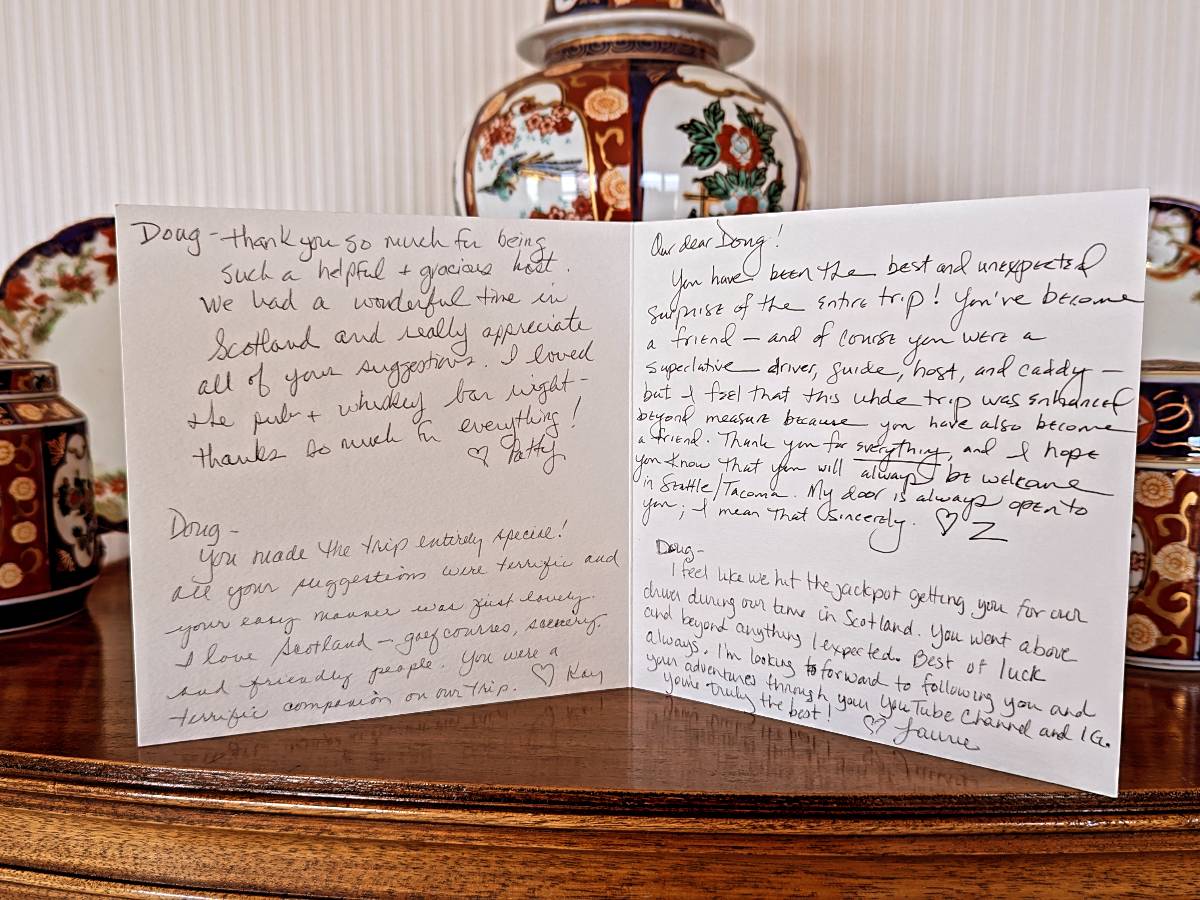 Doug - thank you so much for being
such a helpful + gracious host.
We had a wonderful time in
Scotland and really appreciate
all of your suggestions. I loved
the pub + whiskey bar night -
thanks so much for everything!
♡ Patty
Doug -
You made the trip entirely special!
all your suggestions were terrific and
your easy manner was just lovely.
I love Scotland - golf courses, scenery,
and friendly people. You were a
terrific companion on our trip. ♡ Kay
Our dear Doug!
You have been the best and unexpected
surprise of the entire trip! You've become
a friend - and of course you were a
superlative driver, guide, host, and caddy -
but I feel that this whole trip was enhanced
beyond measure because you have also become
a friend. Thank you for everything, and I hope
you know that you will always be welcome
in Seattle/Tacoma. My door is always open to
you; I mean that sincerely. ♡ Z
Doug -
I feel like we hit the jackpot getting you for our
driver during our time in Scotland. You went above
and beyond anything I expected. Best of luck
always. I'm looking forward to following you and
your adventures through your YouTube Channel and IG.
You're truly the best! ♡ Laurie